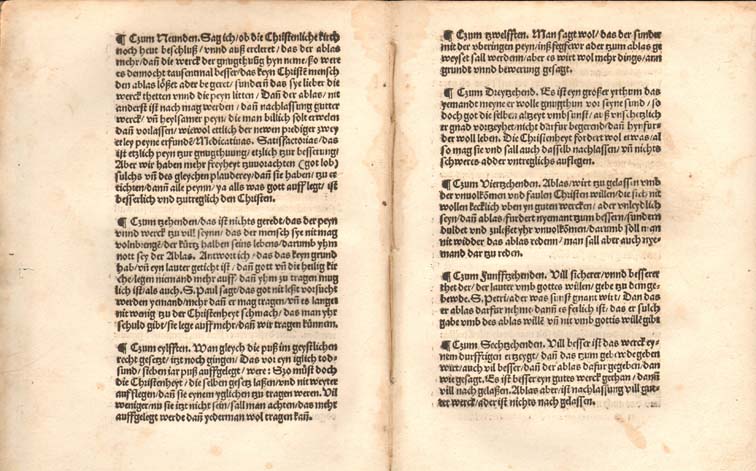 ¶ Czum Neunden. Sag ich/ob die Christenliche kirch
noch heut beschluß/vnnd auß ercleret/das der ablas
mehr/dañ die werck der gnugthuūg hyn neme/ßo were
es dennocht tausentmal besser/das keyn Christē mensch
den ablas lößet ader begeret/sunderñ das sye lieber die
werck thetten vnnd die peyn litten/Dañ der ablas/nit
anderst ist nach mag werden/dañ nachlassung gutter
werck/vñ heylsamer peyn/die man billich solt erwelen
dañ vorlassen/wiewol ettlich der newen prediger zwey
erley peyne erfundē/Medicatiuas. Satisfactorias/das
ist etzlich peyn tzur gnugthuung/etzlich tzur besserung/
Aber wir haben mehr freyheyt tzuuorachten (got lob)
sulchs vñ des gleychen plauderey/dañ sie haben/tzu er
tichten/dann alle peynn/ya alls was gott auff legt/ist
besserlich vnd tzutreglich den Christen.
¶ Czum tzehenden/das ist nichts geredt/das der peyn
vnnd werck tzu vill seynn/das der mensch sye nit mag
volnbrengē/der kürtz halben seins lebens/darumb yhm
nott sey der Ablas. Antwort ich/das das keyn grund
hab/vñ eyn lauter geticht ist/dann gott vñ die heilig kir
che/legen niemand mehr auff/dañ yhm tzu tragen mug
lich ist/als auch. S. Paul sagt/das got nit lest vorsucht
werden yemand/mehr dañ er mag tragen/vñ es langet
nit wenig tzu der Christenheyt schmach/das man yhr
schuld gibt/sie lege auff mehr/dañ wir tragen künnen.
¶ Czum eylfften. Wan gleych die puß im geystlichen
recht gesetzt/itzt noch gingen/Das vor eyn iglich tod-
sund/sieben iar puß auffgelegt/were: Szo müst doch
die Christenheyt/die selben gesetz laßen/vnd nit weyter
aufflegen/dañ sie eynem yglichen tzu tragen weren. Vil
weniger/nu sie itzt nicht sein/sall man achten/das mehr
auffgelegt werde dañ yederman wol tragen kañ.
¶ Czum tzwelfften. Man sagt wol/das der sunder
mit der vberingen peyn/inß fegfewr ader tzum ablas ge
weyset sall werdenn/aber es wirt wol mehr dings/ann
grundt vnnd bewerung gesagt.
¶ Czum Dreytzehend. Es ist eyn großer yrthum das
yemandt meyne er wolle gnugthun vor seyne sund/so
doch got die selben altzeyt vmbsunst/auß vnschetzlich
er gnad vortzeyhet/nicht darfur begerend/dañ hynfurt
der woll leben. Die Christenheyt fordert wol etwas/al
so mag sie vnd sall auch dasselb nachlassen/vñ nichts
schweres adder vntreglichs auflegen.
¶ Czum Viertzehenden. Ablas/wirt tzu gelassen vmb
der vnuolkömen vnd faulen Christen willen/die sich nit
wollen kecklich vben yn guten wercken/ader vnleydlich
seyn/dañ ablas/furdert nyemant tzum bessern/sundern
duldet vnd zuleßet yhr vnuolkömen/darumb soll man
nit widder das ablas redenn/man sall aber auch nye-
mand dar tzu reden.
¶ Czum Funfftzehenden. Vill sicherer/vnnd besserer
thet der/der lauter vmb gottes willen/gebe tzu dem ge-
bewde. S. Petri/ader was sunst gnant wirt/Dan das
er ablas darfur nehme/dann es ferlich ist/das er sulch
gabe vmb des ablas willē vñ nit vmb gottis willē gibt
¶ Czum Sechtzehenden. Vill besser ist das werck ey-
nem durfftigen ertzeygt/dañ das tzum gebewde gegeben
wirt/auch vil besser/dañ der ablas dafur gegeben/dan
wie gesagt. Es ist besser eyn gutes werck gethan/dann
vill nach gelaßen. Ablas aber/ist nachlassung vill gut-
ter werck/ader ist nichts nach gelassen.